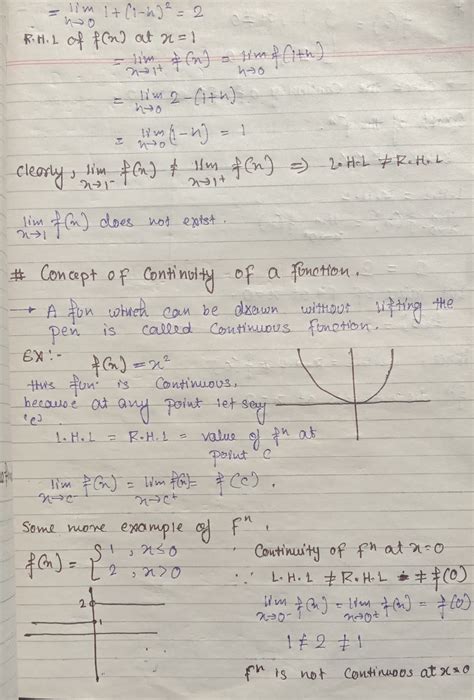 = lim h→0 1+(1-h)² = 2
R.H.L of f(x) at x=1
= lim x→1⁺ f(x) = lim h→0 f(1+h)
= lim h→0 2-(1+h)
= lim h→0 (1-h) = 1
clearly, lim x→1⁻ f(x) ≠ lim x→1⁺ f(x) ⇒ L.H.L ≠ R.H.L
lim x→1 f(x) does not exist.
# Concept of Continuity of a function.
→ A fun which can be drawn without lifting the
pen is called Continuous function.
EX:- f(x) = x²
this funⁿ is Continuous,
because at any point let say
'c'
L.H.L = R.H.L = value of fⁿ at
point C
lim x→c⁻ f(x) = lim x→c⁺ f(x) = f(c).
Some more example of Fⁿ.
f(x) = { 1, x≤0
2, x>0
2
1
Continuity of fⁿ at x=0
∵ L.H.L ≠ R.H.L ≠ f(0)
lim x→0⁻ f(x) = lim x→0⁺ f(x) = f(0)
1 ≠ 2 ≠ 1
fⁿ is not Continuoos at x=0